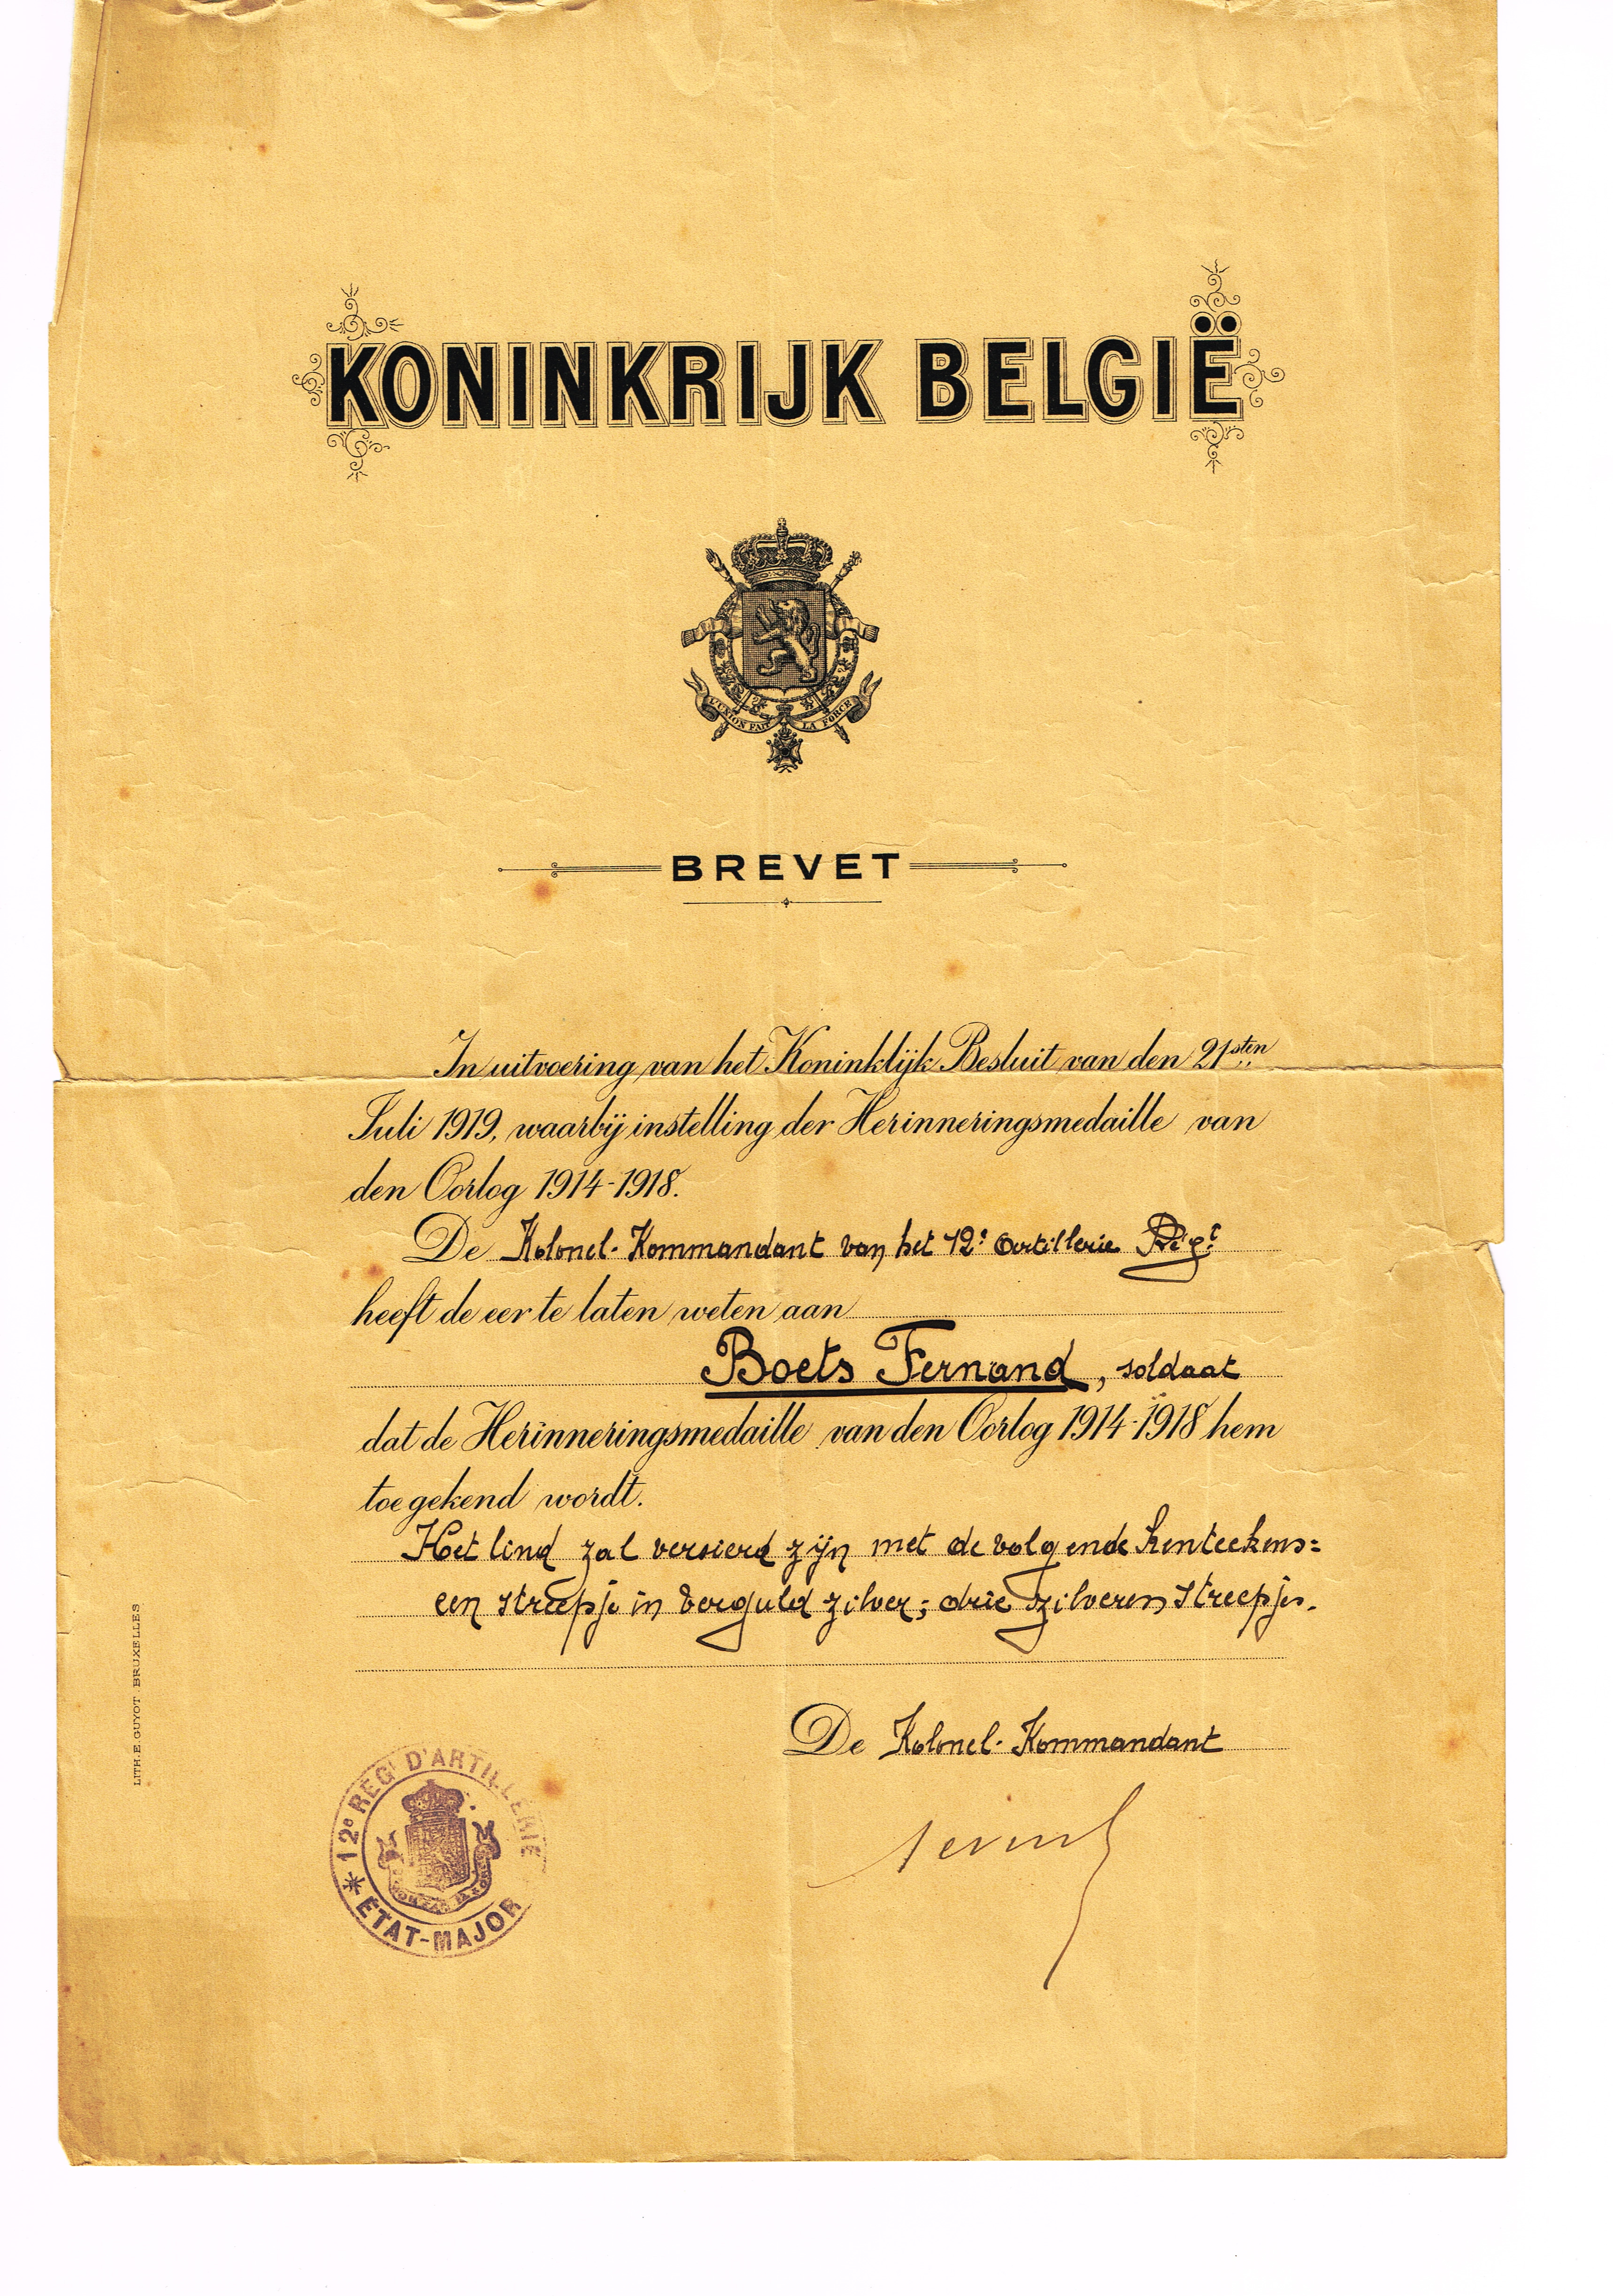 KONINKRIJK BELGIË
L'UNION FAIT LA FORCE
BREVET
In uitvoering van het Koninklijk Besluit van den 21sten
Juli 1919, waarbij instelling der Herinneringsmedaille van
den Oorlog 1914-1918.
De Kolonel-Kommandant van het 12e Artillerie Regt
heeft de eer te laten weten aan
Boets Fernand, soldaat
dat de Herinneringsmedaille van den Oorlog 1914-1918 hem
toegekend wordt.
Het lind zal versierd zijn met de volgende kenteekens=
een streepje in verguld zilver; drie zilveren streepjes.
De Kolonel-Kommandant
12e REGt D'ARTILLERIE
* ETAT-MAJOR
LITH. E. GUYOT. BRUXELLES